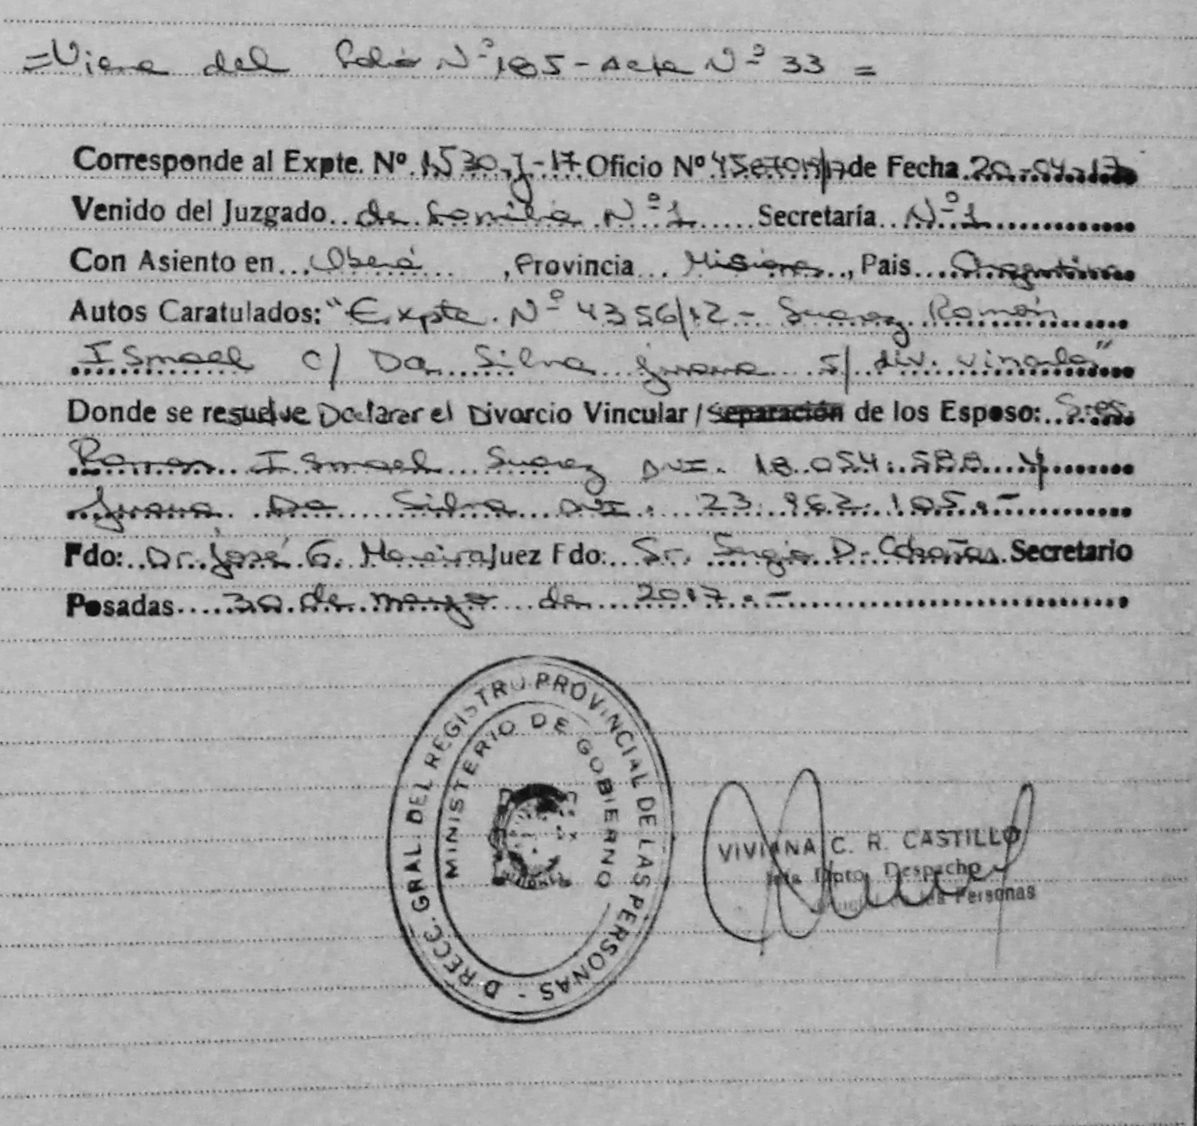 =Viene del Folio Nº 185 - Acta Nº 33 =
Corresponde al Expte. Nº 1530-J-17 Oficio Nº de Fecha 20-04-17
Venido del Juzgado de Familia Nº 1 Secretaría Nº 1
Con Asiento en Oberá, Provincia Misiones, Pais Argentina
Autos Caratulados: "Expte. Nº 4356/12 - Suarez Ramón
Ismael c/ Da Silva Juana s/ div. vincular"
Donde se resuelve Declarar el Divorcio Vincular/Separación de los Esposo: Sres.
Ramon Ismael Suarez DNI. 18.054.588 y
Juana Da Silva DNI. 23.962.105.-
Fdo: Dr. José G. Moreira Juez Fdo: Sr. Sergio D. Secretario
Posadas 30 de marzo de 2017.-
DIRECC. GRAL. DEL REGISTRO PROVINCIAL DE LAS PERSONAS -
MINISTERIO DE GOBIERNO
MISIONES
VIVIANA C. R. CASTILLO
Jefa Dpto. Despacho
Personas